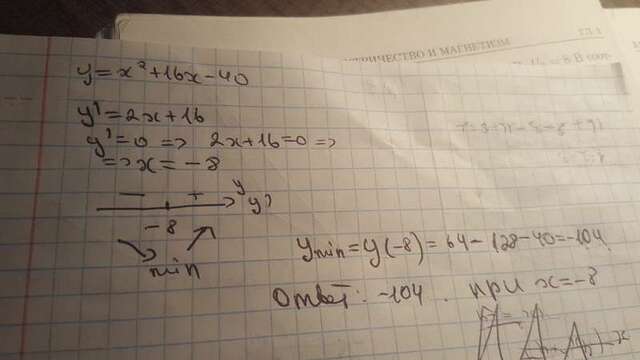 ГЛ 1
ТРИЧЕСТВО И МАГНЕТИЗМ
y=x²+16x-40
y'=2x+16
y'=0 => 2x+16=0 =>
=> x=-8
- + y
y'
-8
min
y min=y(-8)=64-128-40=-104
Ответ: -104. при x=-8